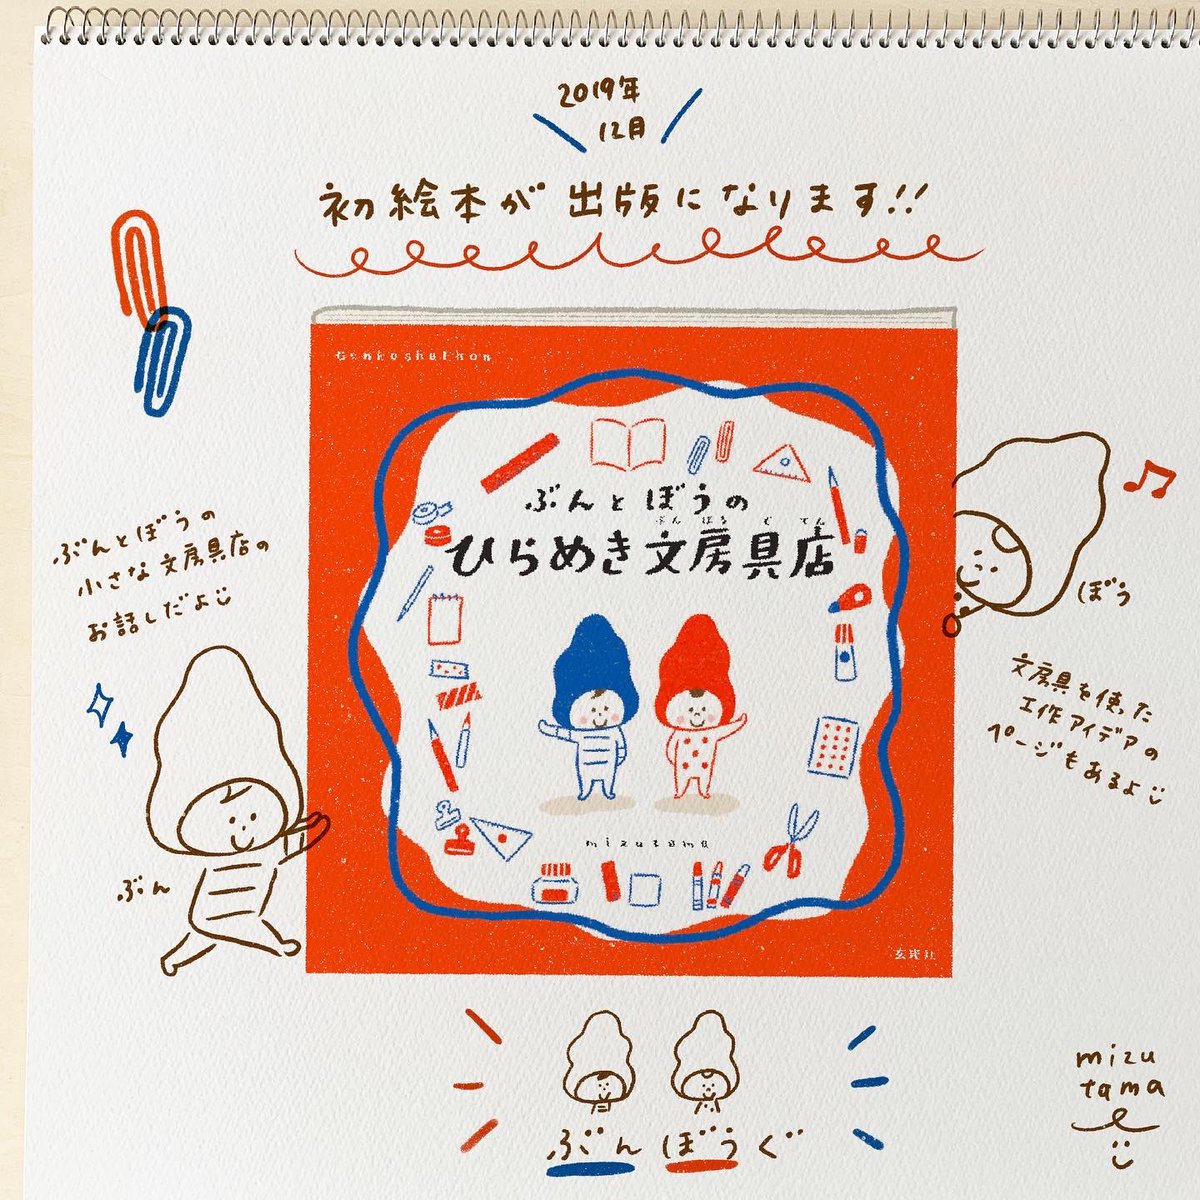 2019年
12月
初絵本が出版になります!!
Genkoshahon
ぶんとぼうの
ぶん ぼう ぐ てん
ひらめき文房具店
ぶんとぼうの
小さな文房具店の
お話しだよ
ぼう
文房具を使った
工作アイデアの
ページもあるよ
ぶん
mizutama
玄光社
ぶんぼうぐ
mizu
tama